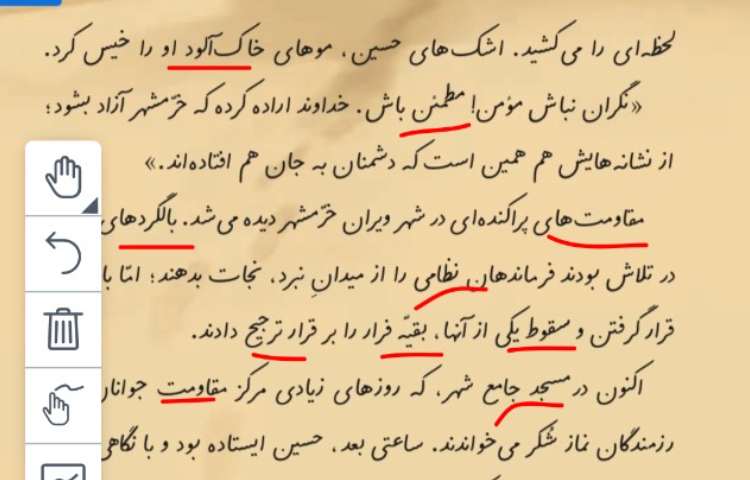 لحظه‌ای را می‌کشید. اشک‌های حسین، موهای خاک‌آلود او را خیس کرد.
«نگران نباش مؤمن! مطمئن باش. خداوند اراده کرده که خرّمشهر آزاد بشود؛
از نشانه‌هایش هم همین است که دشمنان به جان هم افتاده‌اند.»
مقاومت‌های پراکنده‌ای در شهر ویران خرّمشهر دیده می‌شد. بالگردهای
در تلاش بودند فرماندهان نظامی را از میدانِ نبرد، نجات بدهند؛ امّا با
قرار گرفتن و سقوط یکی از آنها، بقیّه فرار را بر قرار ترجیح دادند.
اکنون در مسجد جامع شهر، که روزهای زیادی مرکز مقاومت جوانان
رزمندگان نماز شُکر می‌خواندند. ساعتی بعد، حسین ایستاده بود و با نگاهی